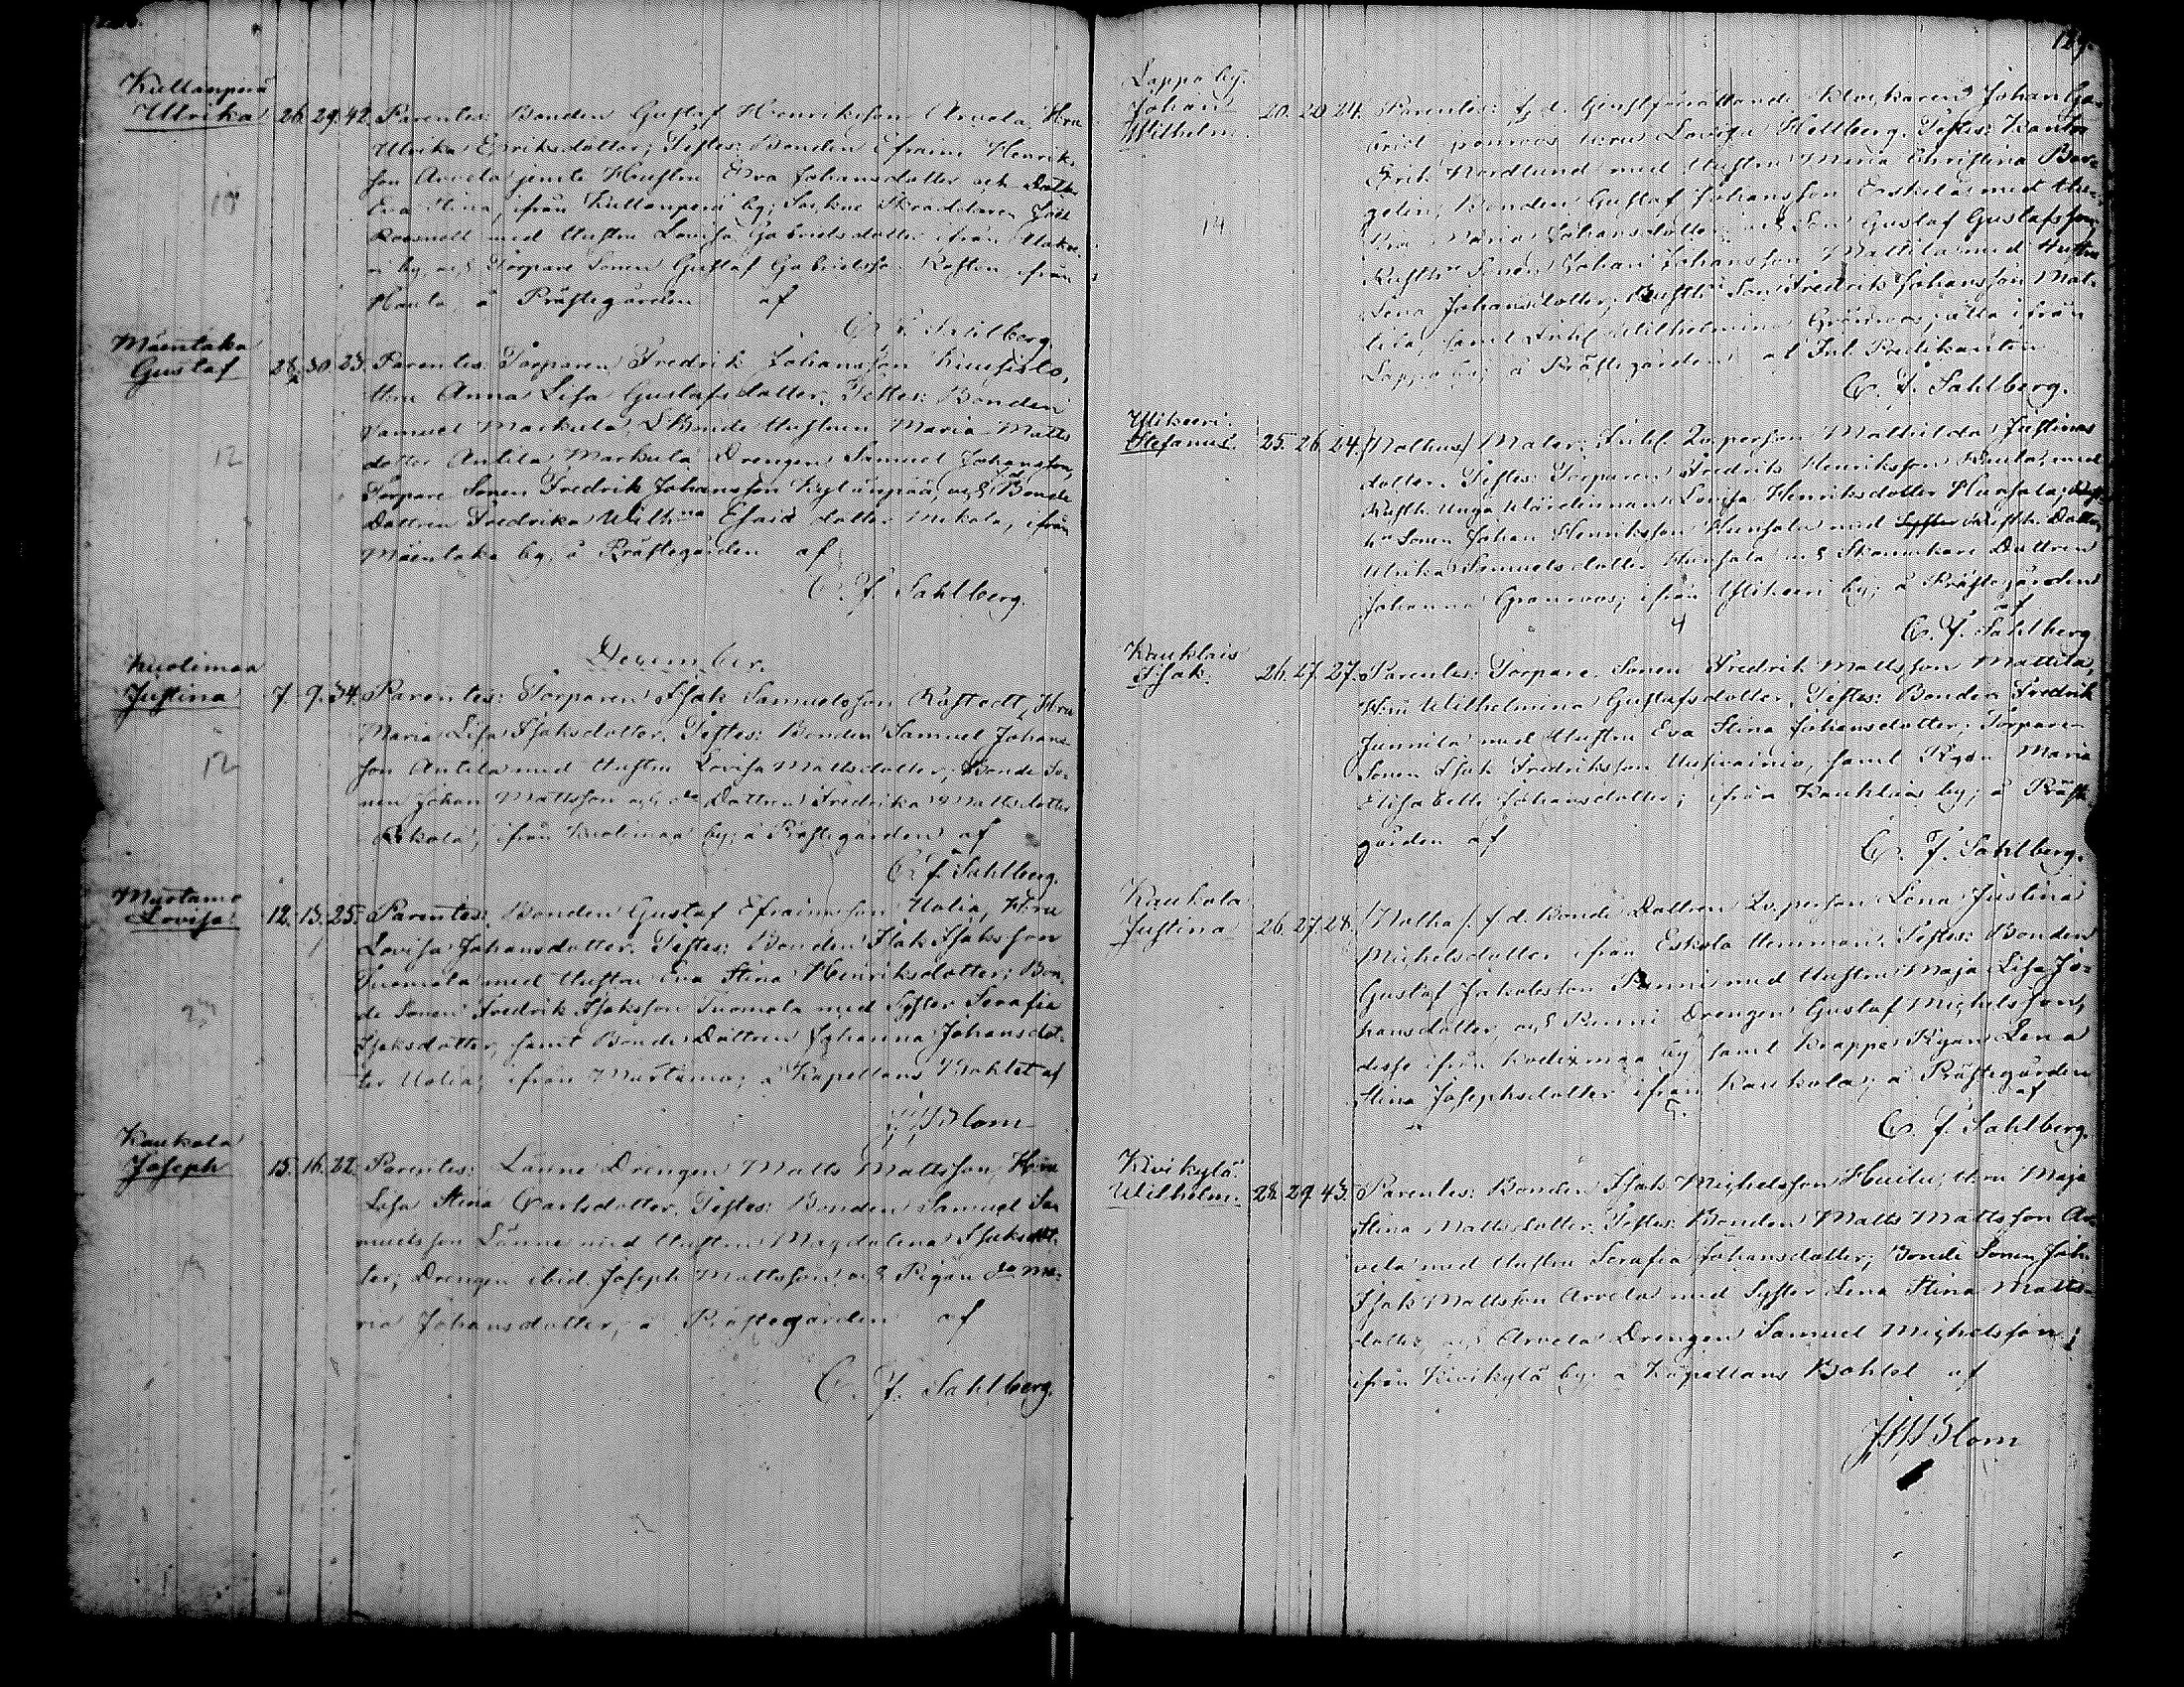 Kullanperä
Ulrika 26. 29. 42. Parentes: Bonden Gustaf Henriksson Arvela, H:ru
Ulrika Eriksdotter; Testes: Bonden Efraim Henrik-
son Arvela jemte Hustru Eva Johansdotter och Dotter
Eva Stina, ifrån Kullanperä by; Sockne Skräddaren
med Hustru Lovisa Gabrielsdotter ifrån
by, och Torpare Sonen Gustaf Gabrielsson ifrån
å Prästegården af
C. F. Sahlberg.
Mäentaka
Gustaf 28. 30. 23. Parentes: Torparen Fredrik Johansson
H:ru Anna Lisa Gustafsdotter. Testes: Bonden
Samuel Markula, Bonde Hustrun Maria Matts
dotter Antila, Markula Drengen Samuel Johansson,
Torpare Sonen Fredrik Johansson och Bonde
Dottren Fredrika Wilh:na Esaiæ dotter Mikola, ifrån
Mäentaka by, å Prästegården af
C. F. Sahlberg.
December.
Kuolimaa
Justina 7. 9. 34. Parentes: Torparen Isak Samuelsson Råstedt, H:ru
Maria Lisa Isaksdotter. Testes: Bonden Samuel Johans-
son Antila med Hustru Lovisa Mattsdotter, Bonde So-
nen Johan Mattsson och d:o Dottren Fredrika Mattsdotter
Eskola, ifrån Kuolimaa by; å Prästegården af
C. F. Sahlberg.
Murtamo
Lovisa 12. 13. 25. Parentes: Bonden Gustaf Efraimsson Uotia, H:ru
Lovisa Johansdotter. Testes: Bonden Isak Isaksson
Suomela med Hustru Eva Stina Henriksdotter; Bon-
de Sonen Fredrik Isaksson Suomela med Syster Serafia
Isaksdotter, samt Bonde Dottren Johanna Johansdot-
ter Uotia; ifrån Murtamo; å Kapellans Bohlet af
Blom
Kaukola
Joseph 15. 16. 22. Parentes: Länne Drengen Matts Mattsson, H:ru
Lisa Stina Carlsdotter. Testes: Bonden Samuel Sa-
muelsson Länne med Hustru Magdalena Isaksdot-
ter, Drengen ibid. Joseph Mattsson och Pigan d:o Ma-
ria Johansdotter; å Prästegården af
C. F. Sahlberg.
129.
Lappo by.
Johan
Wilhelm. 20. 20. 24. Parentes: f. d. Klockaren Johan Ga-
briel H:ru Lovisa Hellberg. Testes: Kantor
Erik Nordlund med Hustru Maria Christina
Bonden Gustaf Johansson Erkkilä med Hu-
stru Maria Johansdotter och Son Gustaf Gustafsson,
Rusth:s Sonen Johan Johansson Mattila med Hustru
Lena Johansdotter, Rusth:s Son Fredrik Johansson Mat-
tila, samt Wilhelmina Grönroos; alla ifrån
Lappo by; å Prästegården af Predikanten
C. F. Sahlberg.
Ylikeeri.
Stefanus. 25. 26. 24. (Nothus) Mater: Inh. Qv.person Mathilda Justina
dotter. Testes: Torparen Fredrik Henriksson med
Lovisa Henriksdotter
Sonen Johan Henriksson med Rusth. Dottren
Ulrika Samuelsdotter och Skomakare Dottren
Johanna Granroos; ifrån Ylikeeri by; å Prästegården
af
4 C. F. Sahlberg.
Kauklais
Isak. 26. 27. 27. Parentes: Torpare Sonen Fredrik Mattsson Mattila,
H:ru Wilhelmina Gustafsdotter. Testes: Bonden Fredrik
Junnila med Hustru Eva Stina Johansdotter; Torpare
Sonen Isak Fredriksson samt Pigan Maria
Elisabeth Johansdotter; ifrån Kauklais by; å Präste-
gården af
C. F. Sahlberg.
Kaukola
Justina 26. 27. 28. (Notha) f. d. Bonde Dottren Qv.person Lena Justina
Michelsdotter ifrån Eskola Hemman. Testes: Bonden
Gustaf Jakobsson Penni med Hustru Maja Lisa Jo-
hansdotter, och Penni Drengen Gustaf Michelsson,
desse ifrån Kodixmaa by samt Krappe Pigan Lena
Stina Josephsdotter ifrån Kaukola; å Prästegården
af
C. F. Sahlberg.
Kivikylä
Wilhelm. 28. 29. 43. Parentes: Bonden Isak Michelsson Huitu, H:ru Maja
Stina Mattsdotter. Testes: Bonden Matts Mattsson Ar-
vela med Hustru Serafia Johansdotter; Bonde Sonen Joh.
Isak Mattsson Arvela med Syster Lena Stina Matts-
dotter, och Arvela Drengen Samuel Michelsson;
ifrån Kivikylä by; å Kapellans Bohlet af
Blom